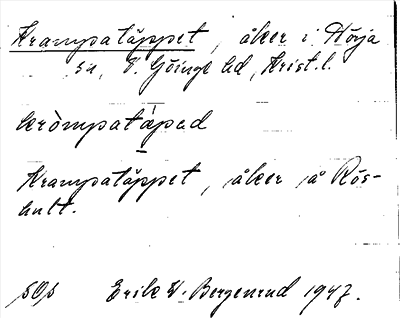 Krampatäppet, åker i Hörja
sn, V. Göinge hd, Krist. l.
kròmpatä̀pad
Krampatäppet, åker å Rös-
hult.
Erik W. Bergenrud 1947.